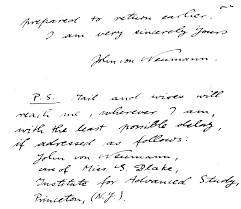 prepared to return earlier.
I am very sincerely Yours
John von Neumann.
P.S. Mail and wires will
reach me, wherever I am,
with the least possible delay,
if adressed as follows:
John von Neumann,
care of Miss G. Blake,
Institute for Advanced Study,
Princeton, (N.J.).